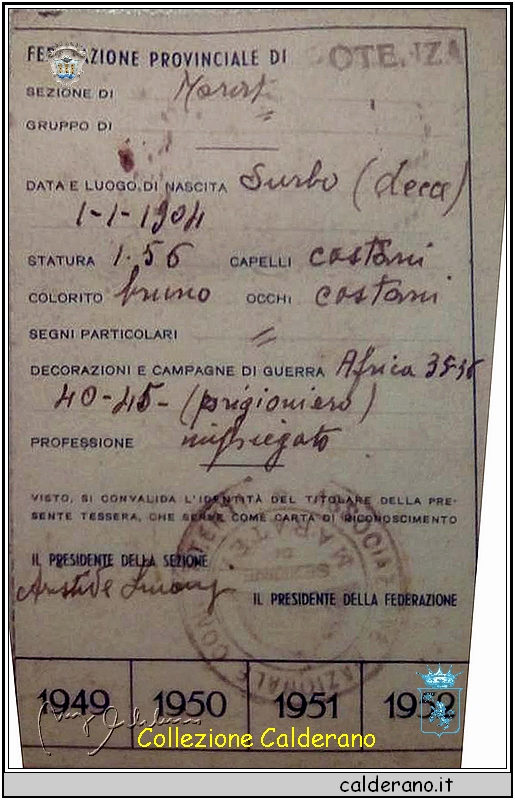 FEDERAZIONE PROVINCIALE DI POTENZA
SEZIONE DI
GRUPPO DI
DATA E LUOGO DI NASCITA Surbo (Lecce)
1-1-1904
STATURA 1.56 CAPELLI castani
COLORITO bruno OCCHI castani
SEGNI PARTICOLARI //
DECORAZIONI E CAMPAGNE DI GUERRA Africa 35-36
40-45- (prigioniero)
PROFESSIONE impiegato
VISTO, SI CONVALIDA L'IDENTITÀ DEL TITOLARE DELLA PRE-
SENTE TESSERA, CHE SERVE COME CARTA DI RICONOSCIMENTO
IL PRESIDENTE DELLA SEZIONE
IL PRESIDENTE DELLA FEDERAZIONE
SEZIONE
DI
MARATEA
1949 1950 1951 1952
Collezione Calderano
calderano.it